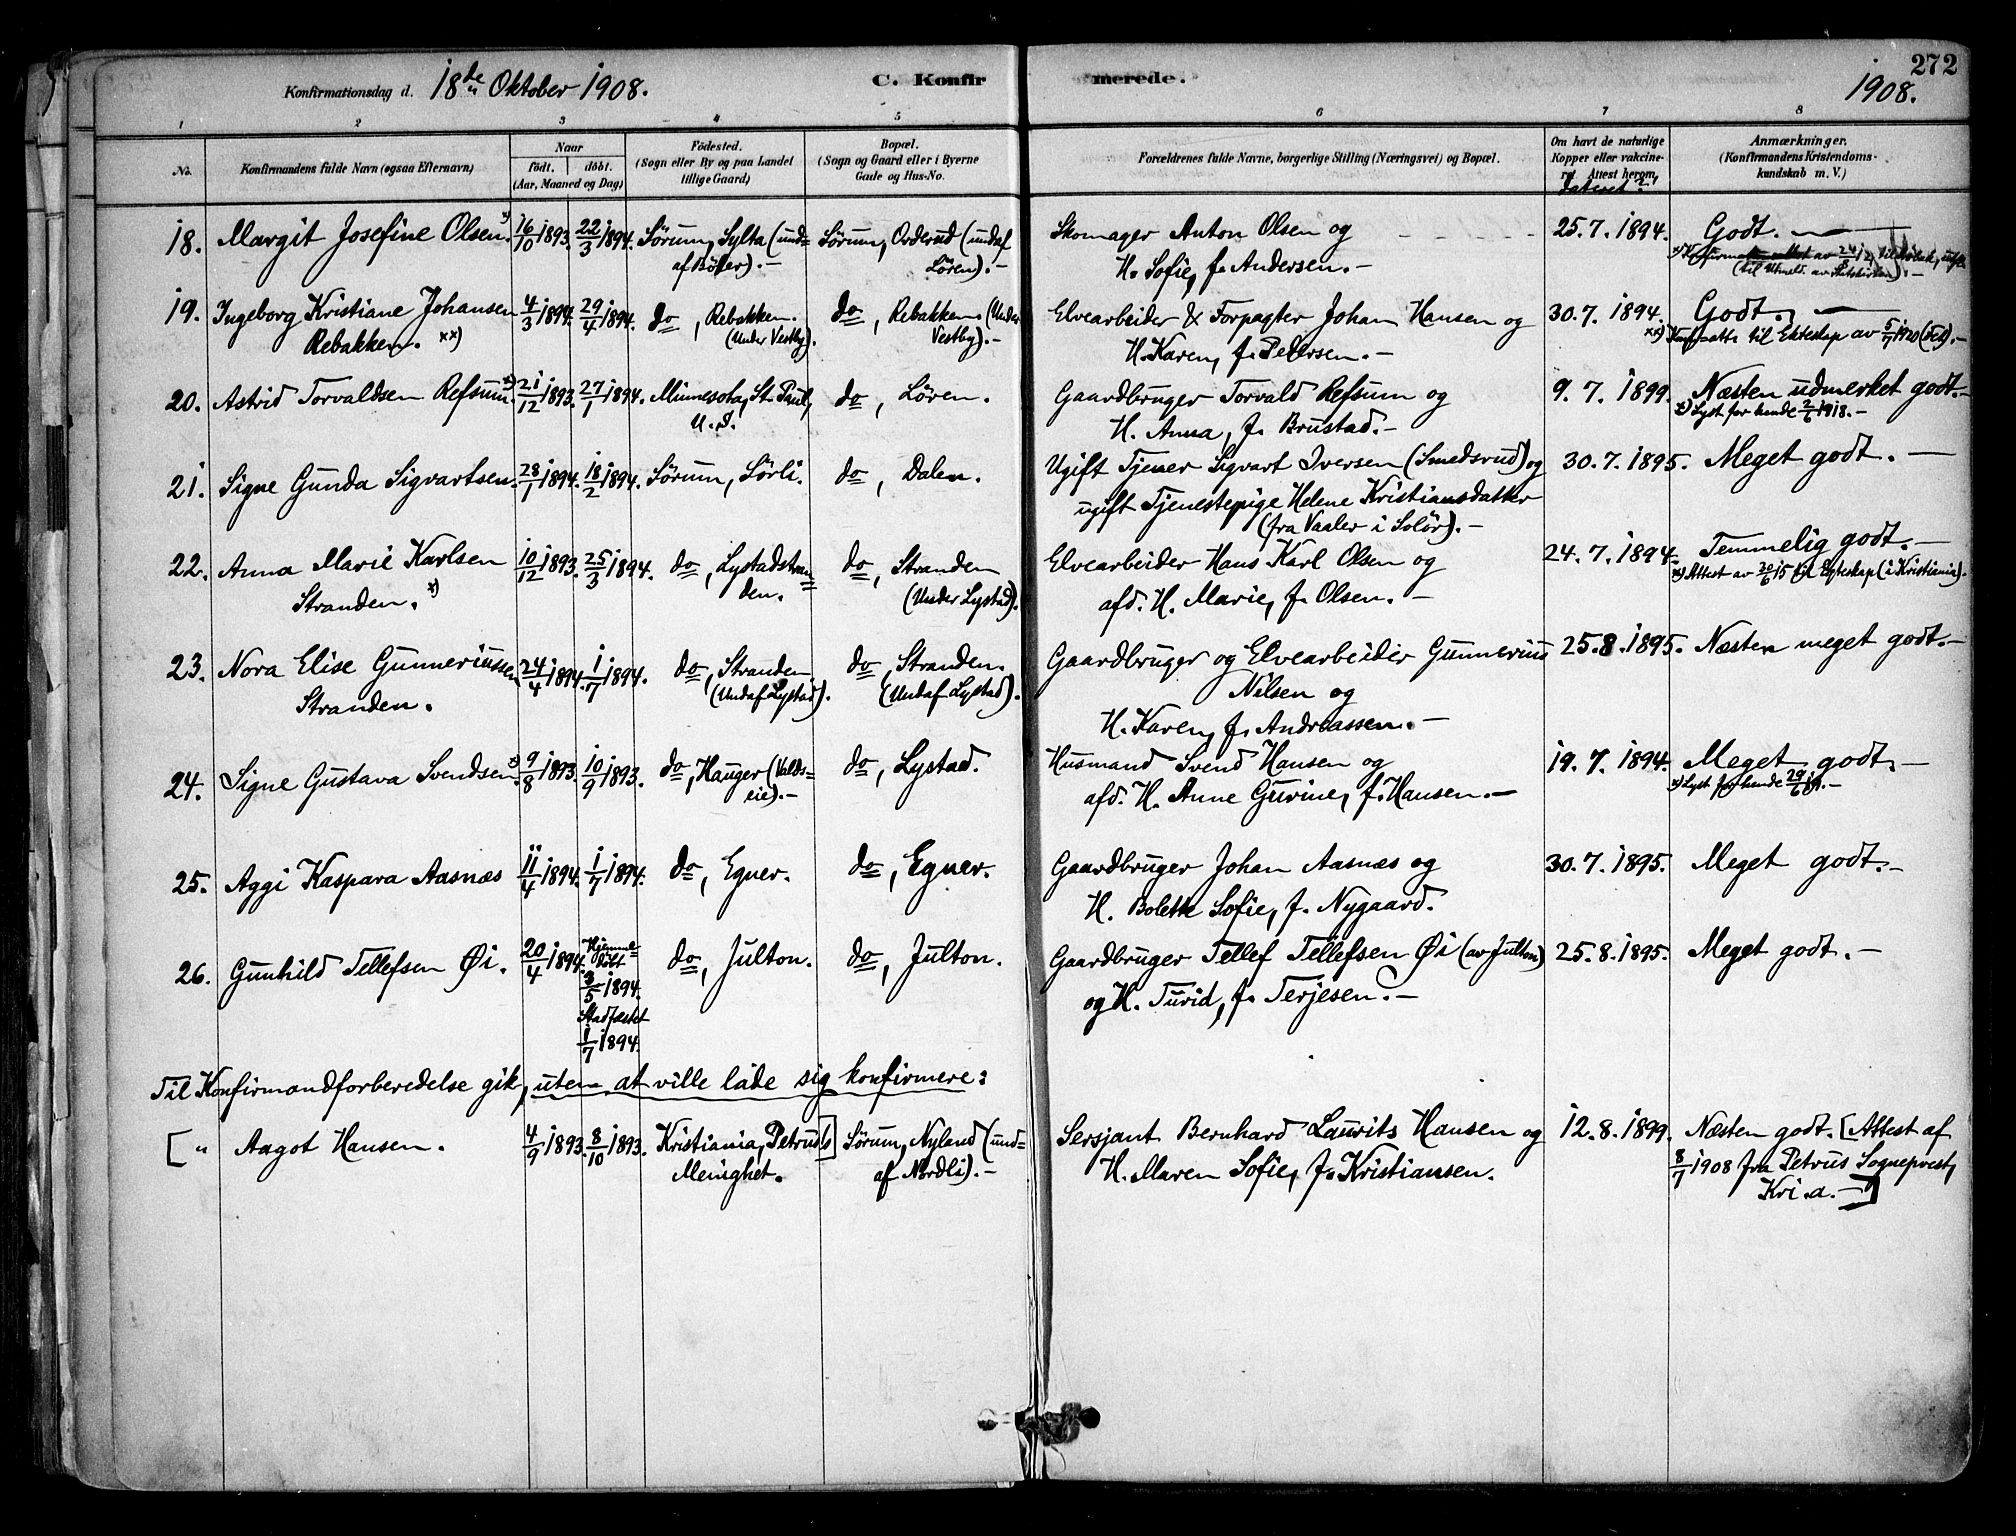 272
Konfirmationsdag d. 18de Oktober 1908.
C. Konfirmerede.
1908.
1 2 3 4 5 6 7 8
No.
Konfirmandens fulde Navn (ogsaa Efternavn)
Naar
født. døbt.
(Aar, Maaned og Dag)
Fødested.
(Sogn eller By og paa Landet
tillige Gaard)
Bopæl.
(Sogn og Gaard eller i Byerne
Gade og Hus-No.
Forældrenes fulde Navne, borgerlige Stilling (Næringsvei) og Bopæl.
Om havt de naturlige
Kopper eller vakcine-
ret. Attest herom,
dateret?
Anmærkninger.
(Konfirmandens Kristendoms-
kundskab m. V.)
18. Margit Josefine Olsen. x) 16/10 1893. 22/3 1894. Sörum, Sylta (und= Sörum, Orderud (undaf Skomager Anton Olsen og 25.7.1894. Godt. —
af Böler). — Lören). — H. Sofie, f. Andersen. —
19. Ingeborg Kristiane Johansen 4/3 1894. 29/4 1894. do, Rebakken. do, Rebakken. (Under Elvearbeider & Forpagter Johan Hansen og 30.7.1894. Godt. —
Rebakken. xx) (Under Vestby). Vestby). — H. Karen, f. Pedersen. — xx) Konf-atte. til Ekteskap av 5/7 1920
20. Astrid Torvaldsen Refsum. x) 21/12 1893. 27/1 1894. Minnesota, St. Paul, do, Lören. Gaardbruger Torvald Refsum og 9.7.1899. Næsten udmerket godt. —
U. S. H. Anna, f. Brustad. — x) Lyst for hende 2/6 1918. —
21. Signe Gunda Sigvartsen. 28/1 1894. 18/2 1894. Sörum, Sörli. do, Dalen. Ugift Tjener Sigvart Iversen (Smedsrud) og 30.7.1895. Meget godt. —
ugift Tjenestepige Helene Kristiansdatter
(fra Vaaler i Solör). —
22. Anna Marie Karlsen 10/12 1893. 25/3 1894. do, Lystadstran= do, Stranden Elvearbeider Hans Karl Olsen og 24.7.1894. Temmelig godt. —
Stranden. x) den. (Under Lystad). afd. H. Marie, f. Olsen. — x) Attest av 30/6 15 til Egteskap (i Kristiania).
23. Nora Elise Gunneriussen 24/4 1894. 1/7 1894. do, Stranden. do, Stranden. Gaardbruger og Elvearbeider Gunnerius 25.8.1895. Næsten meget godt. —
Stranden. (Undaf Lystad). (Undaf Lystad). Nilsen og
H. Karen, f. Andreassen. —
24. Signe Gustava Svendsen. x) 9/8 1893. 10/9 1893. do, Hauger (Valds= do, Lystad. Husmand Svend Hansen og 19.7.1894. Meget godt. —
eie). — afd. H. Anne Gurine, f. Hansen. — x) Lyst for hende 29/6
25. Aggi Kaspara Aasnæs 11/4 1894. 1/7 1894. do, Egner. do, Egner. Gaardbruger Johan Aasnæs og 30.7.1895. Meget godt. —
H. Bolette Sofie, f. Nygaard.
26. Gunhild Tellefsen Øi. 20/4 1894. Hjemme= do, Julton. do, Julton. Gaardbruger Tellef Tellefsen Øi (av Julton) 25.8.1895. Meget godt. —
døbt og H. Turid, f. Terjesen. —
3/5 1894.
Stadfæstet
1/7 1894.
Til Konfirmandforberedelse gik, uten at ville lade sig konfirmere:
[ " Aagot Hansen. 4/9 1893. 8/10 1893. Kristiania, Petrus's] Sörum, Nyland (und= Sersjant Bernhard Laurits Hansen og 12.8.1899. Næsten godt. [Attest af
Menighet. af Nordli). — H. Maren Sofie, f. Kristiansen. 8/7 1908 fra Petrus Sogneprest,
Kri.a. —]